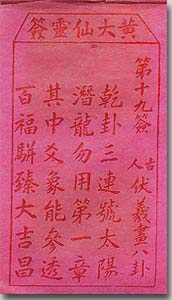 黃大仙靈簽
第十九簽
古人 伏羲畫八卦
乾卦三連號太陽
潛龍勿用第一章
其中爻象能參透
百福駢臻大吉昌